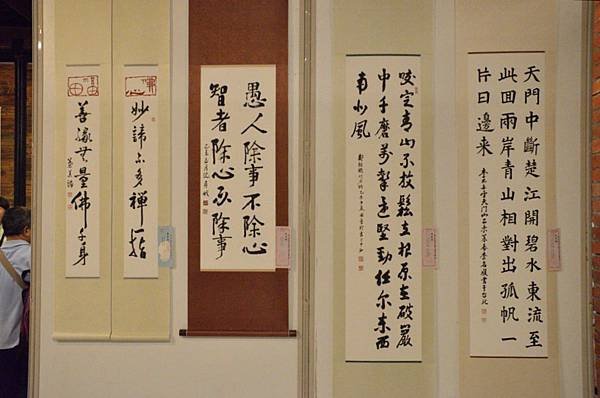 天門中斷楚江開碧水東流至
此回兩岸青山相對出孤帆一
片日邊來
咬定青山不放鬆立根原在破巖
中千磨萬擊還堅勁任尔东西
南北風
愚人除事不除心
智者除心不除事
妙諦不多禪一指
善緣無量佛千身